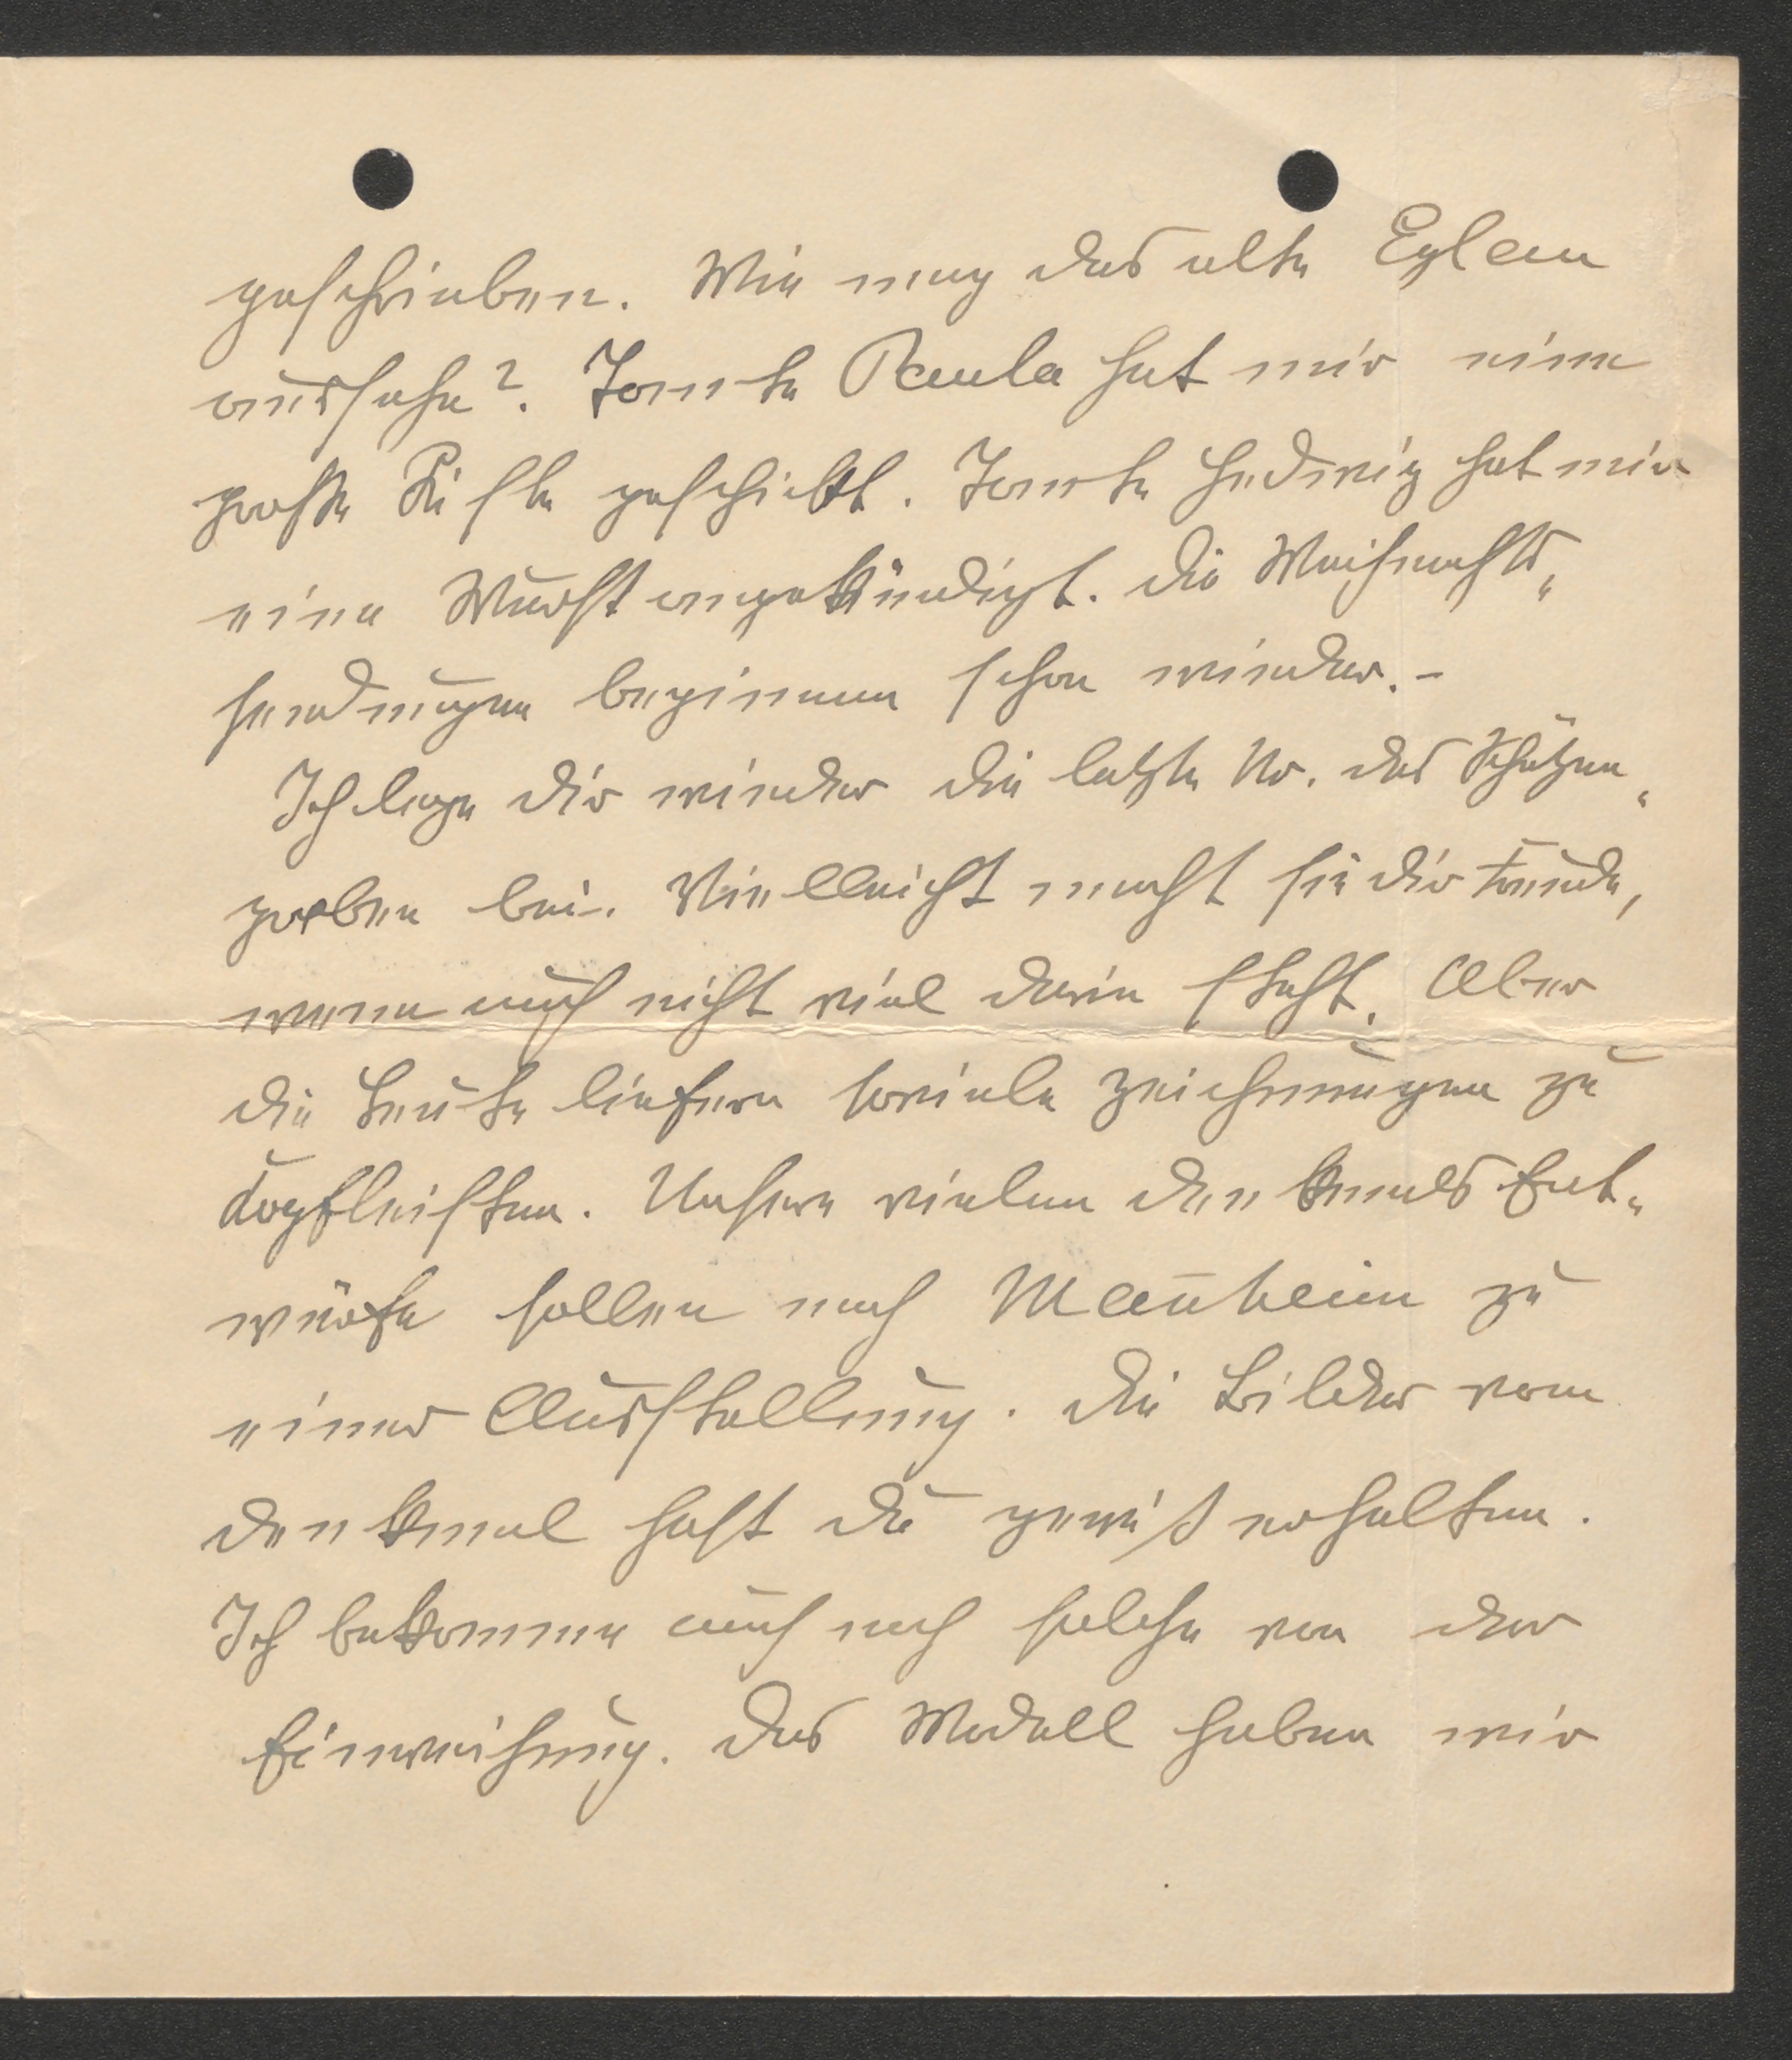 geschrieben. Wie mag das alte Eylau
aussehe?. Tante Paula hat mir eine
große Kiste geschickt. Tante Hedwig hat mir
eine Wurst angekündigt. Die Weihnachts„
sendungen beginnen schon wieder. –
Ich lege dir wieder die letzte Nr. des Schützen„
graben bei. Vielleicht macht sie dir Freude,
wenn auch nicht viel darin steht. Aber
die Leute liefern soviele Zeichnungen zu
Kopfleisten. Unsere vielen Denkmals Ent„
würfe sollen nach Man̅heim zu
einer Ausstellung. Die Bilder vom
Denkmal hast Du gewiß erhalten.
Ich bekomme auch noch solche von der
Einweihung. Das Modell haben wir